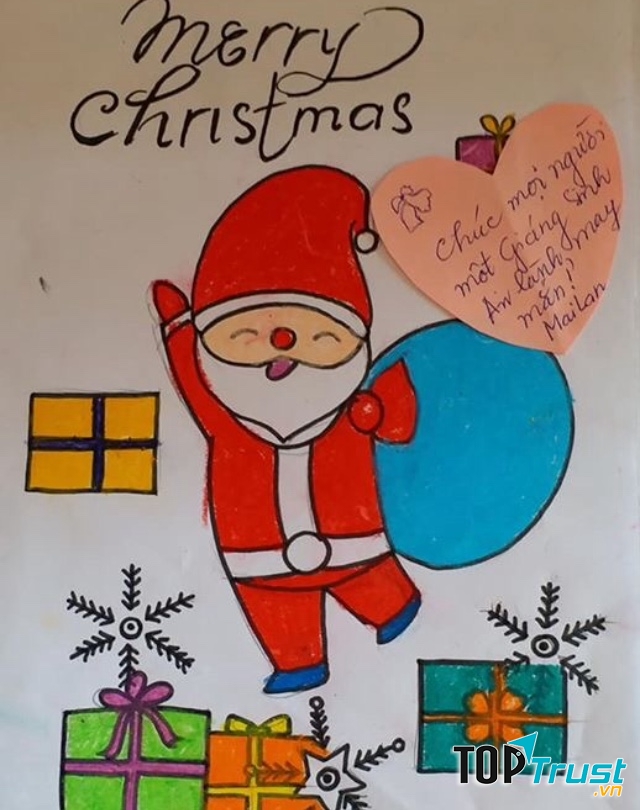 Merry
Christmas
Chúc mọi người
một Giáng Sinh
An lành, may
mắn!
MaiLan
TOPTrust
.vn